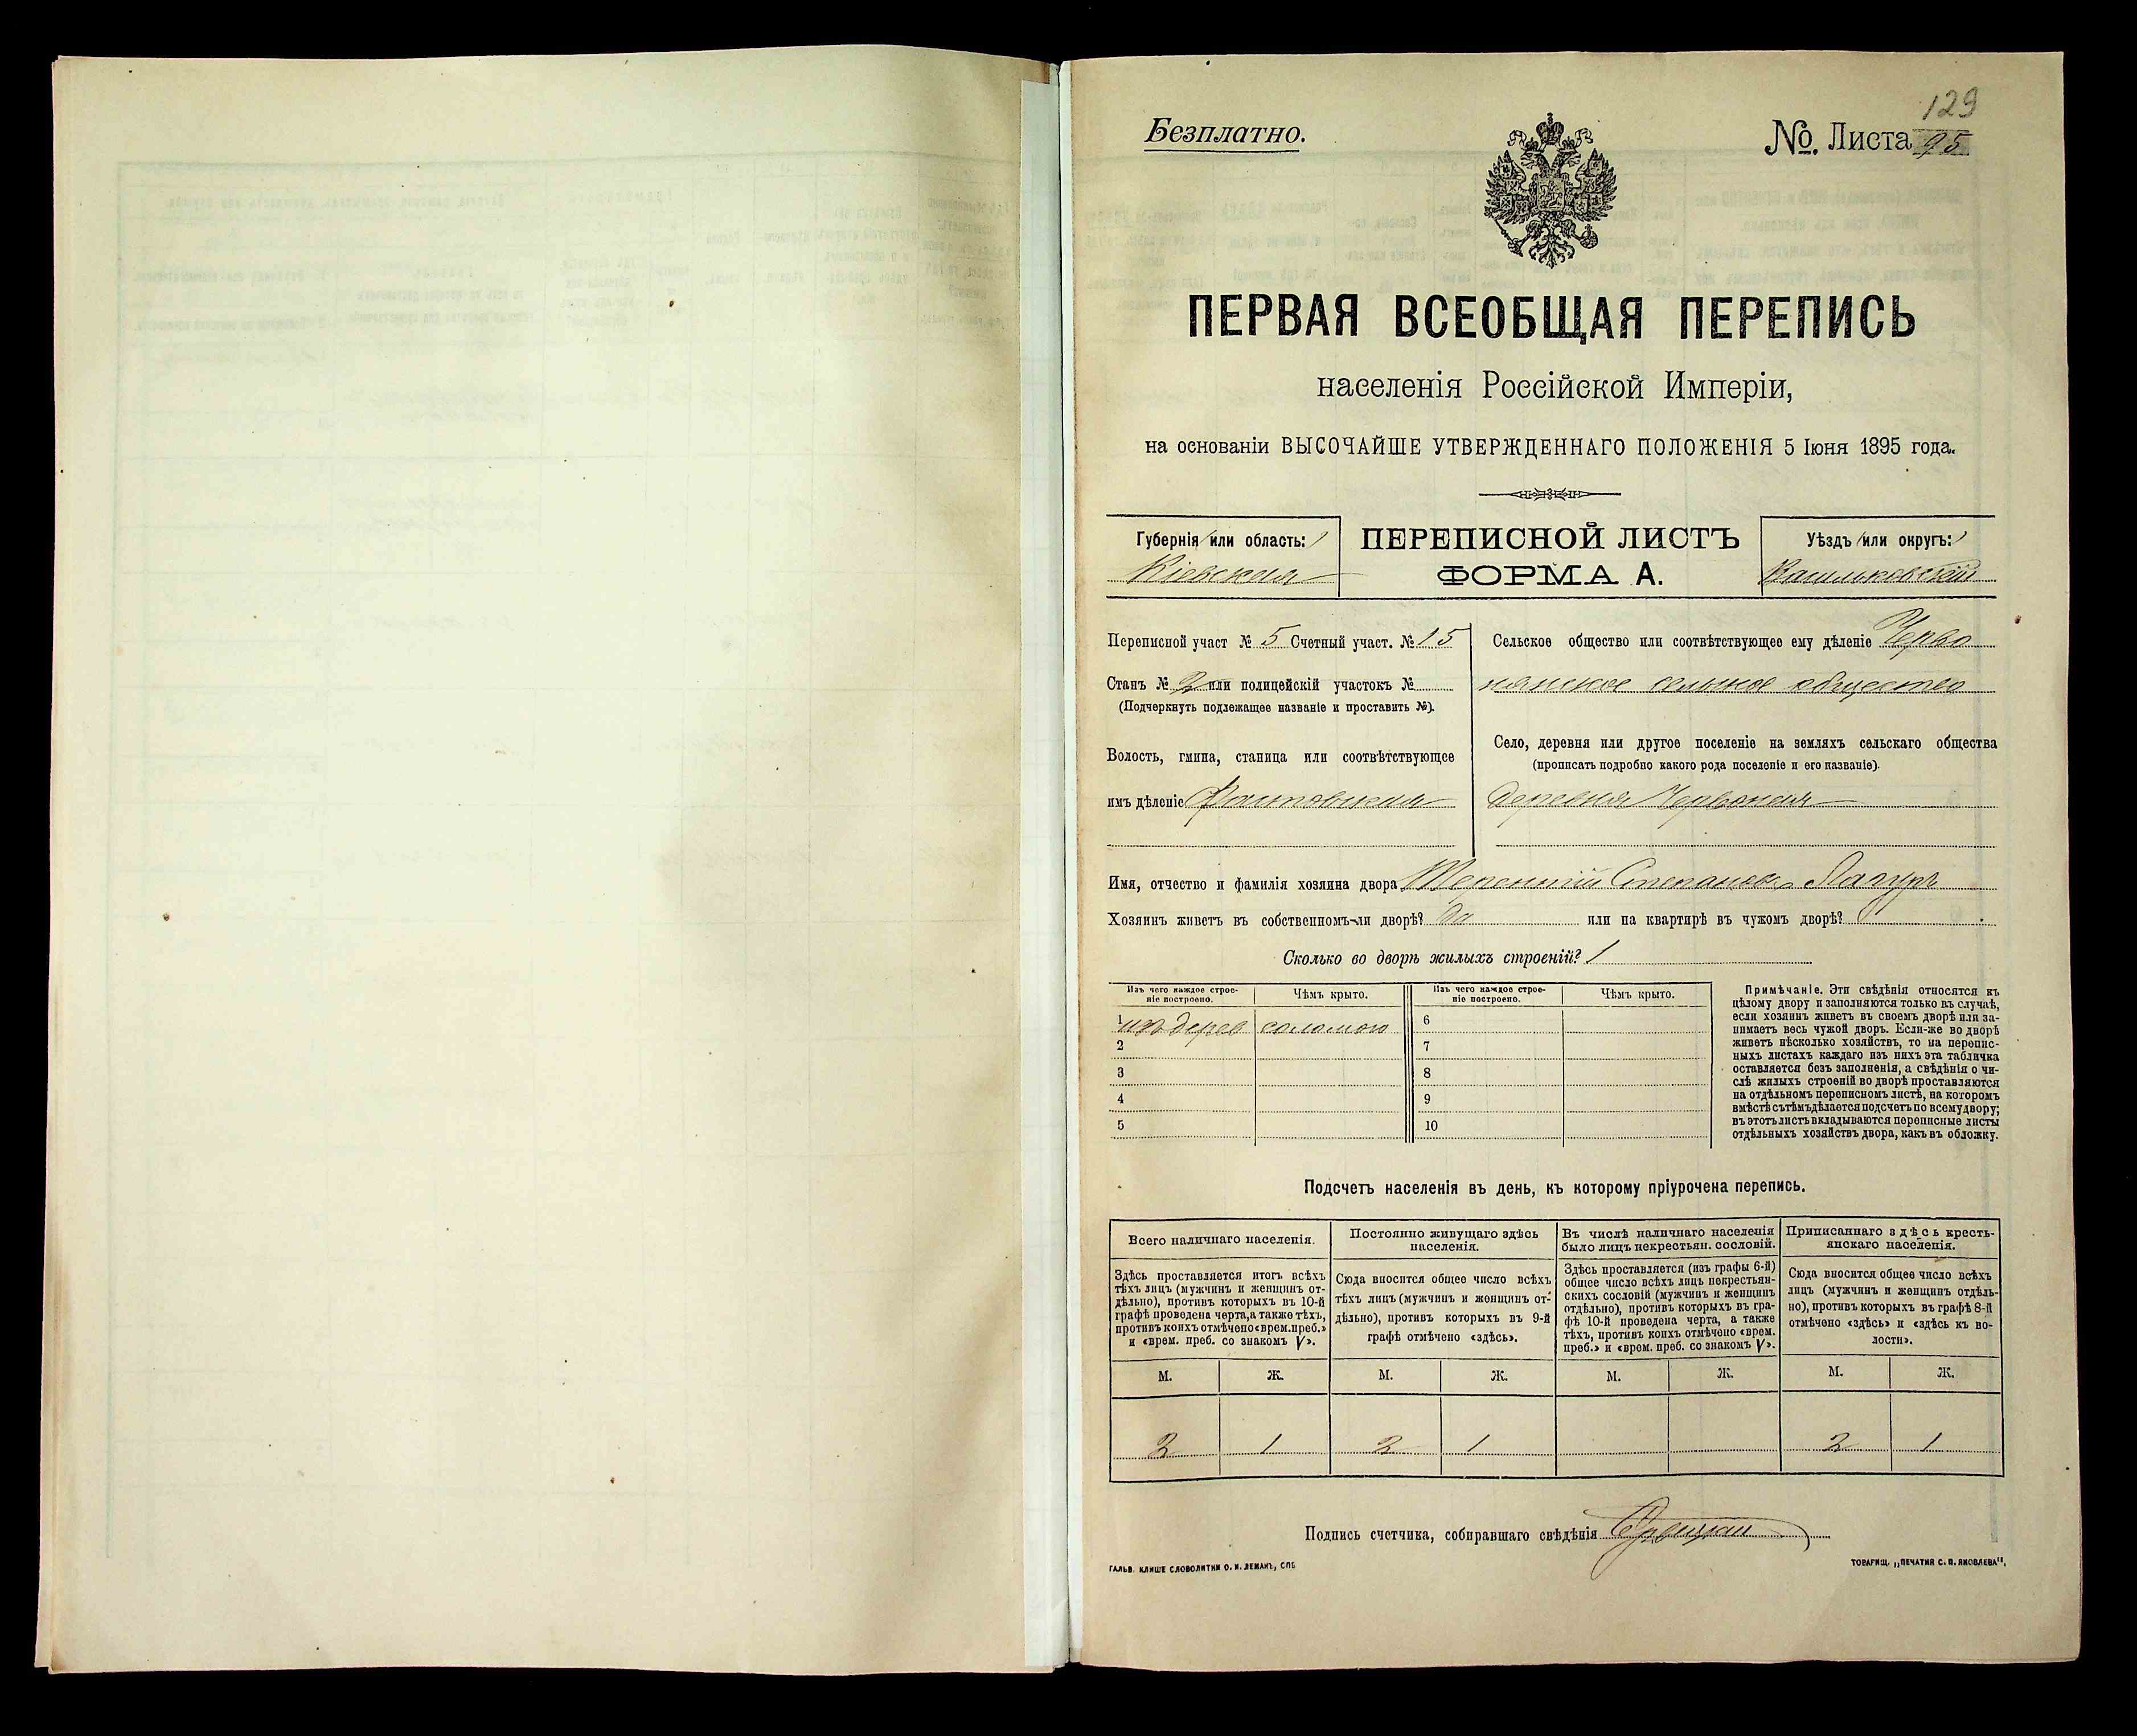 129
Безплатно.
№. Листа 95
ПЕРВАЯ ВСЕОБЩАЯ ПЕРЕПИСЬ
населенія Россійской Имперіи,
на основаніи ВЫСОЧАЙШЕ УТВЕРЖДЕННАГО ПОЛОЖЕНІЯ 5 Іюня 1895 года.
Губернія (или область:)
Кіевская
ПЕРЕПИСНОЙ ЛИСТЪ
ФОРМА А.
Уѣздъ (или округъ:)
Васильковскій
Переписной участ № 5 Счетный участ. № 15
Станъ № 2 или полицейскій участокъ №
(Подчеркнуть подлежащее названіе и проставить №).
Волость, гмина, станица или соотвѣтствующее
имъ дѣленіе Фастовская
Сельское общество или соотвѣтствующее ему дѣленіе Черво
нянское сельское общество
Село, деревня или другое поселеніе на земляхъ сельскаго общества
(прописать подробно какого рода поселеніе и его названіе).
Деревня Червоная
Имя, отчество и фамилія хозяина двора Терентій Степановъ Лазуръ
Хозяинъ живетъ въ собственномъ-ли дворѣ? Да или на квартирѣ въ чужомъ дворѣ?
Сколько во дворѣ жилыхъ строеній? 1
Изъ чего каждое строе-
ніе построено.
Чѣмъ крыто.
Изъ чего каждое строе-
ніе построено.
Чѣмъ крыто.
1 изъ дерев соломою 6
2 7
3 8
4 9
5 10
Примѣчаніе. Эти свѣдѣнія относятся къ
цѣлому двору и заполняются только въ случаѣ,
если хозяинъ живетъ въ своемъ дворѣ или за-
нимаетъ весь чужой дворъ. Если-же во дворѣ
живетъ нѣсколько хозяйствъ, то на перепис-
ныхъ листахъ каждаго изъ нихъ эта табличка
оставляется безъ заполненія, а свѣдѣнія о чи-
слѣ жилыхъ строеній во дворѣ проставляются
на отдѣльномъ переписномъ листѣ, на которомъ
вмѣстѣ съ тѣмъ дѣлается подсчетъ по всему двору;
въ этотъ листъ вкладываются переписные листы
отдѣльныхъ хозяйствъ двора, какъ въ обложку.
Подсчетъ населенія въ день, къ которому пріурочена перепись.
Всего наличнаго населенія.
Здѣсь проставляется итогъ всѣхъ
тѣхъ лицъ (мужчинъ и женщинъ от-
дѣльно), противъ которыхъ въ 10-й
графѣ проведена черта, а также тѣхъ,
противъ коихъ отмѣчено «врем. преб.»
и «врем. преб. со знакомъ V».
Постоянно живущаго здѣсь
населенія.
Сюда вносится общее число всѣхъ
тѣхъ лицъ (мужчинъ и женщинъ от-
дѣльно), противъ которыхъ въ 9-й
графѣ отмѣчено «здѣсь».
Въ числѣ наличнаго населенія
было лицъ некрестьян. сословій.
Здѣсь проставляется (изъ графы 6-й)
общее число всѣхъ лицъ некрестьян-
скихъ сословій (мужчинъ и женщинъ
отдѣльно), противъ которыхъ въ гра-
фѣ 10-й проведена черта, а также
тѣхъ, противъ коихъ отмѣчено «врем.
преб.» и «врем. преб. со знакомъ V».
Приписаннаго здѣсь кресть-
янскаго населенія.
Сюда вносится общее число всѣхъ
лицъ (мужчинъ и женщинъ отдѣль-
но), противъ которыхъ въ графѣ 8-й
отмѣчено «здѣсь» и «здѣсь къ во-
лости».
М. Ж. М. Ж. М. Ж. М. Ж.
2 1 2 1 2 1
Подпись счетчика, собиравшаго свѣдѣнія
ГАЛЬВ. КЛИШЕ СЛОВОЛИТНИ О. И. ЛЕМАНЪ, СПБ
ТОВАРИЩ. „ПЕЧАТНЯ С. П. ЯКОВЛЕВА".